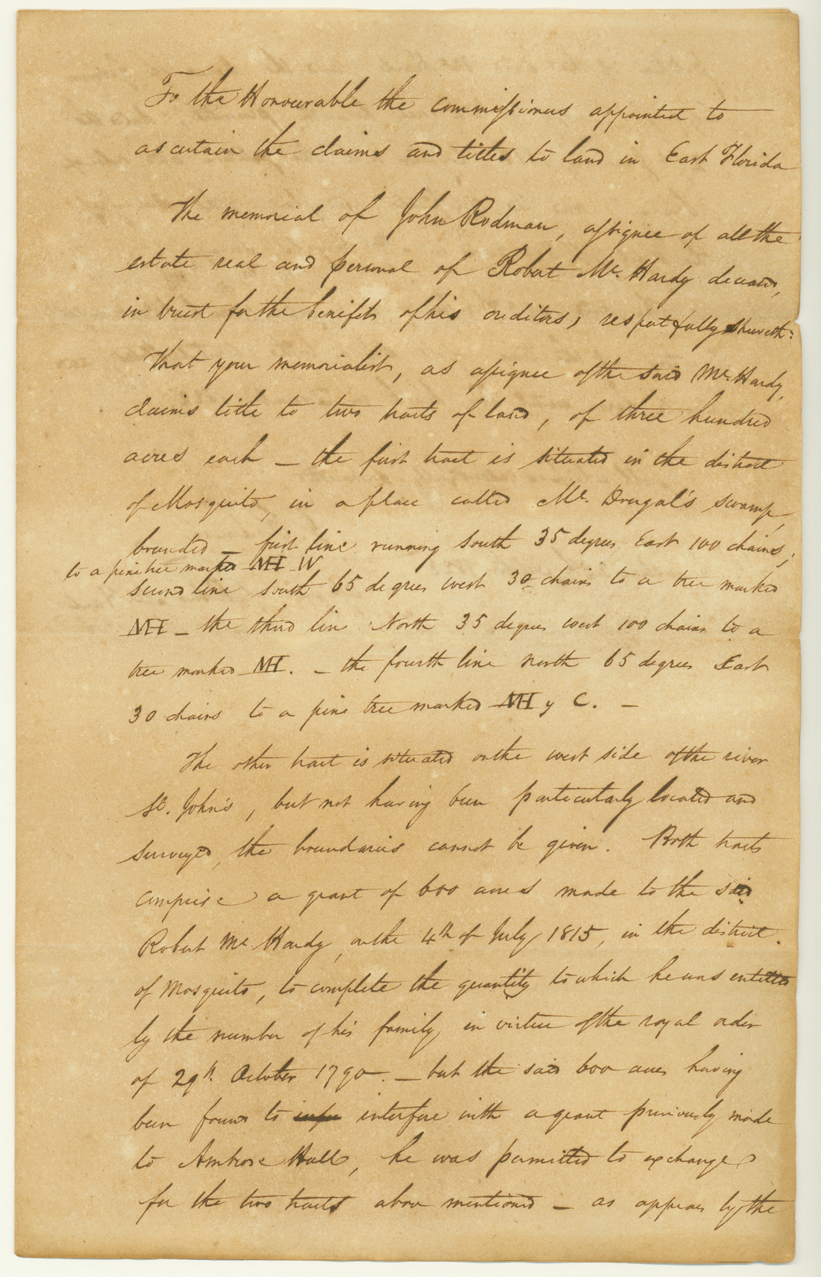 To the Honourable the commissioners appointed to
ascertain the claims and titles to land in East Florida
The memorial of John Rodman, assignee of all the
estate real and personal of Robert Mc. Hardy deceased,
in trust for the benefit of his creditors, respectfully sheweth:
That your memorialist, as assignee of the said Mc. Hardy,
claims title to two tracts of land, of three hundred
acres each – the first tract is situated in the district
of Mosquito, in a place called Mc. Dougal's swamp,
bounded – first line running south 35 degrees East 100 chains,
to a pine tree marked MH W
second line south 65 degrees west 30 chains to a tree marked
MH – the third line North 35 degrees west 100 chains to a
tree marked MH. – the fourth line north 65 degrees East
30 chains to a pine tree marked MH y C. –
The other tract is situated on the west side of the river
St. John's, but not having been particularly located and
surveyed, the boundaries cannot be given. Both tracts
comprise a grant of 600 acres made to the said
Robert Mc Hardy, on the 4th of July 1815, in the district
of Mosquito, to complete the quantity to which he was entitled
by the number of his family in virtue of the royal order
of 29th October 1790. – but the said 600 acres having
been found to interfere with a grant previously made
to Ambrose Hull, he was permitted to exchange
for the two tracts above mentioned – as appears by the